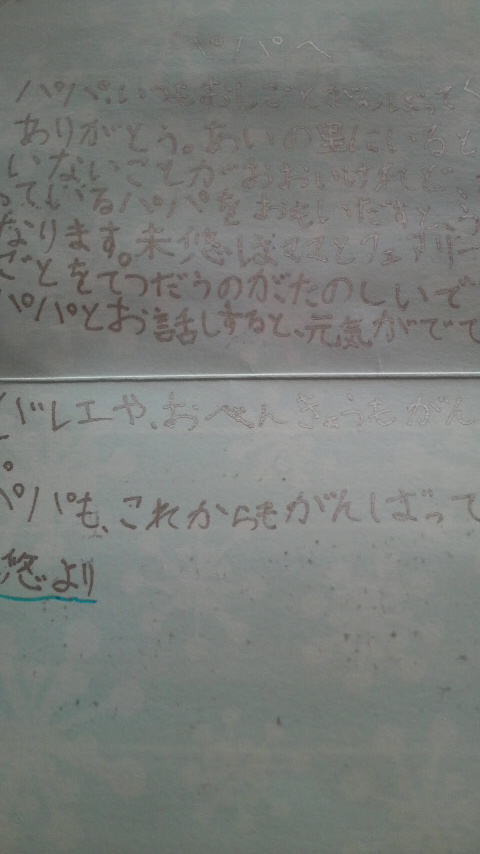 パパへ
パパ、いつもおしごとがんばってく
ありがとう。あいの里にいると
いないことがおおいけれど、
っているパパをおもいだすと、う
なります。未悠はママとフェアリー
ごとをてつだうのがたのしいで
パパとお話しすると、元気がでて
バレエや、おべんきょうもがん
。
パパも、これからもがんばって
悠より